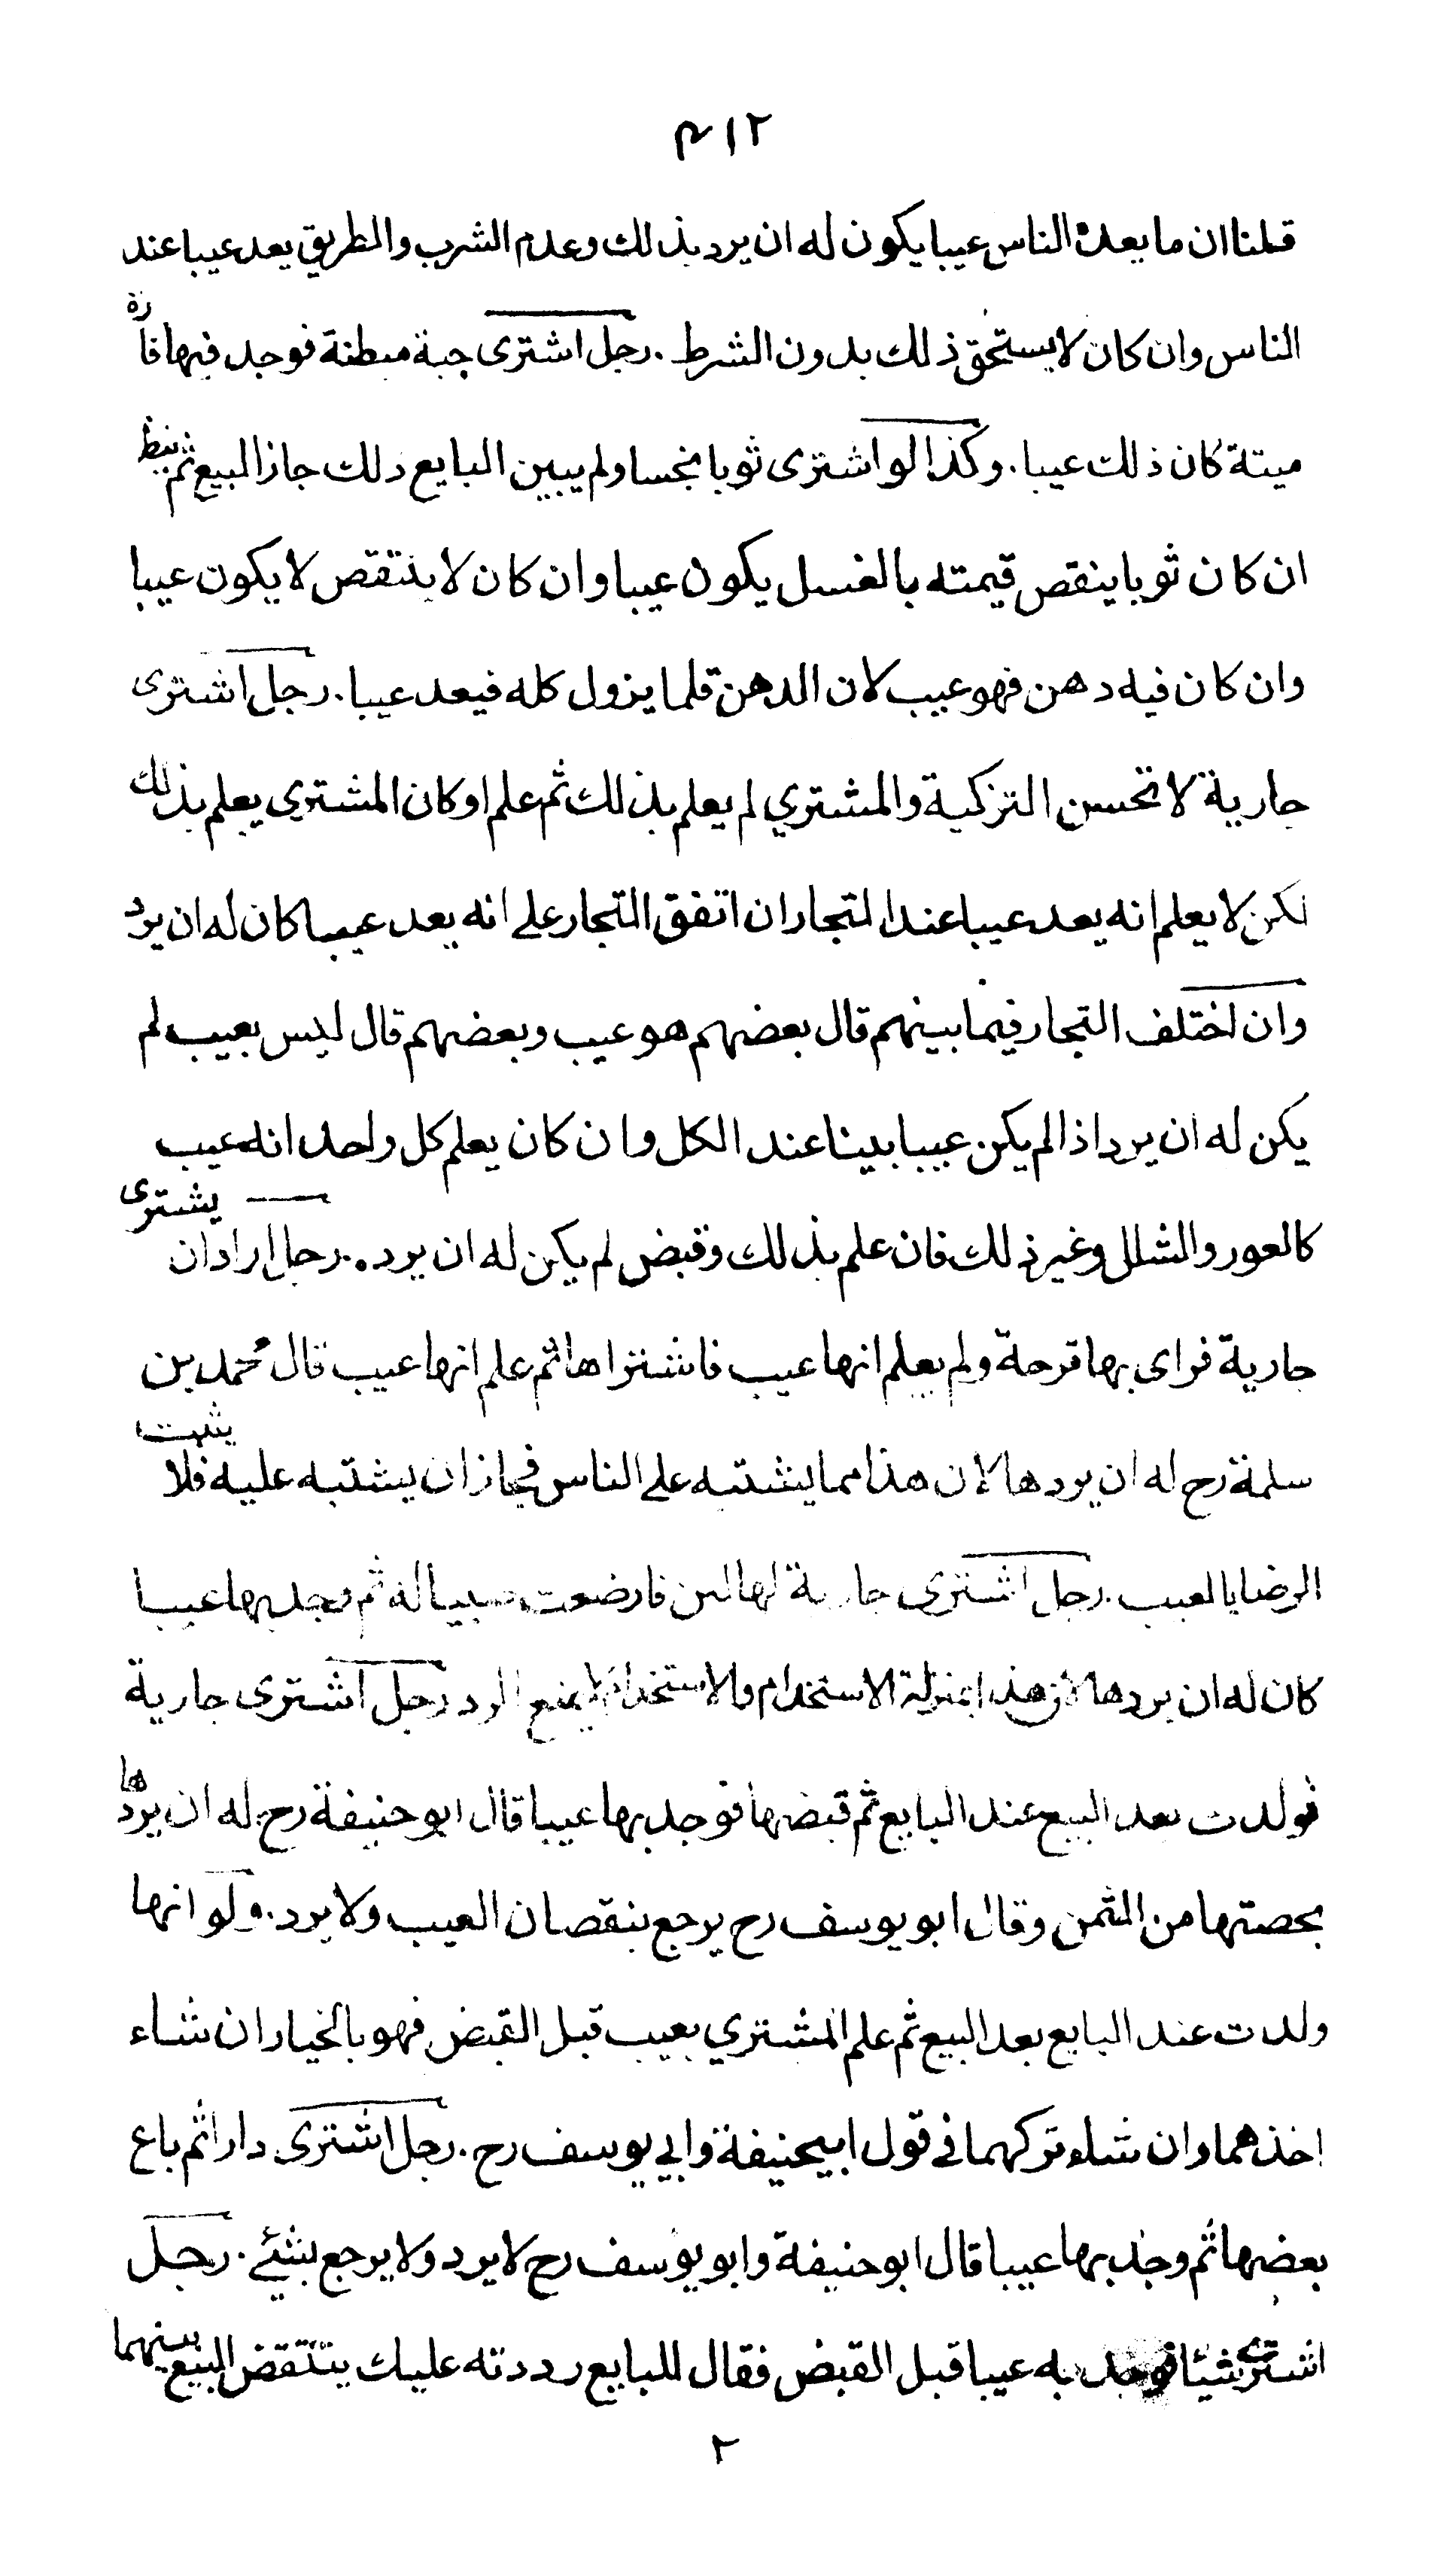 ٢١٣
قلنا ان ما يعده الناس عيبا يكون له ان يرد بذلك وعدم الشرب والطريق يعد عيبا عند
الناس وان كان لا يستحق ذلك بدون الشرط . رجل اشترى جبة مبطنة فوجد فيها فارة
ميتة كان ذلك عيبا . وكذا لو اشترى ثوبا نجسا ولم يبين البايع ذلك جاز البيع ثم ينظر
ان كان ثوبا ينقص قيمته بالغسل يكون عيبا وان كان لا ينتقص لا يكون عيبا
وان كان فيه دهن فهو عيب لان الدهن قلما يزول كله فيعد عيبا . رجل اشترى
جارية لا تحسن التزكية والمشتري لم يعلم بذلك ثم علم او كان المشتري يعلم بذلك
لكن لا يعلم انه يعد عيبا عند التجار ان اتفق التجار على انه يعد عيبا كان له ان يرد
وان اختلف التجار فيما بينهم قال بعضهم هو عيب وبعضهم قال ليس بعيب لم
يكن له ان يرد اذا لم يكن عيبا بينا عند الكل وان كان يعلم كل واحد انه عيب
كالعور والشلل وغير ذلك فان علم بذلك وقبض لم يكن له ان يرده . رجل اراد ان يشترى
جارية فراى بها قرحة ولم يعلم انها عيب فاشتراها ثم علم انها عيب قال محمد بن
سلمة رح له ان يردها لان هذا مما يشتبه على الناس فجاز ان يشتبه عليه فلا يثبت
الرضا بالعيب . رجل اشترى جارية لها لبن فارضعت صبيا له ثم وجد بها عيبا
كان له ان يردها لان هذا بمنزلة الاستخدام والاستخدام لا يمنع الرد رجل اشترى جارية
فولدت بعد البيع عند البايع ثم قبضها فوجد بها عيبا قال ابو حنيفة رح له ان يردها
بحصتها من الثمن وقال ابو يوسف رح يرجع بنقصان العيب ولا يرد . ولو انها
ولدت عند البايع بعد البيع ثم علم المشتري بعيب قبل القبض فهو بالخيار ان شاء
اخذهما وان شاء تركهما في قول ابيحنيفة وابي يوسف رح . رجل اشترى دارا ثم باع
بعضها ثم وجد بها عيبا قال ابو حنيفة وابو يوسف رح لا يرد ولا يرجع بشئ . رجل
اشترى شيئا فوجد به عيبا قبل القبض فقال للبايع رددته عليك ينتقض البيع بينهما
٢